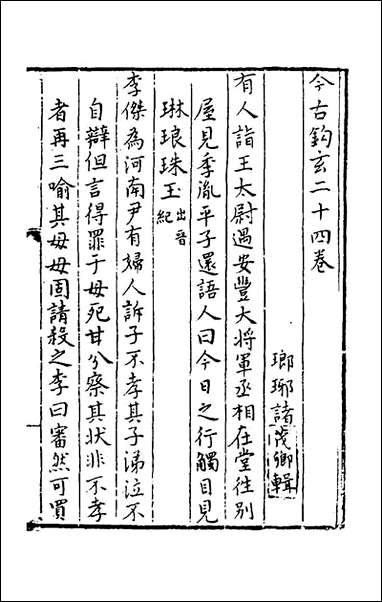 今古鈎玄二十四卷
瑯琊諸茂卿輯
有人詣王太尉遇安豐大將軍丞相在堂往別
屋見季胤平子還語人曰今日之行觸目見
琳琅珠玉出晉紀
李傑為河南尹有婦人訴子不孝其子涕泣不
自辯但言得罪于母死甘分察其狀非不孝
者再三喻其母母固請殺之李曰審然可買